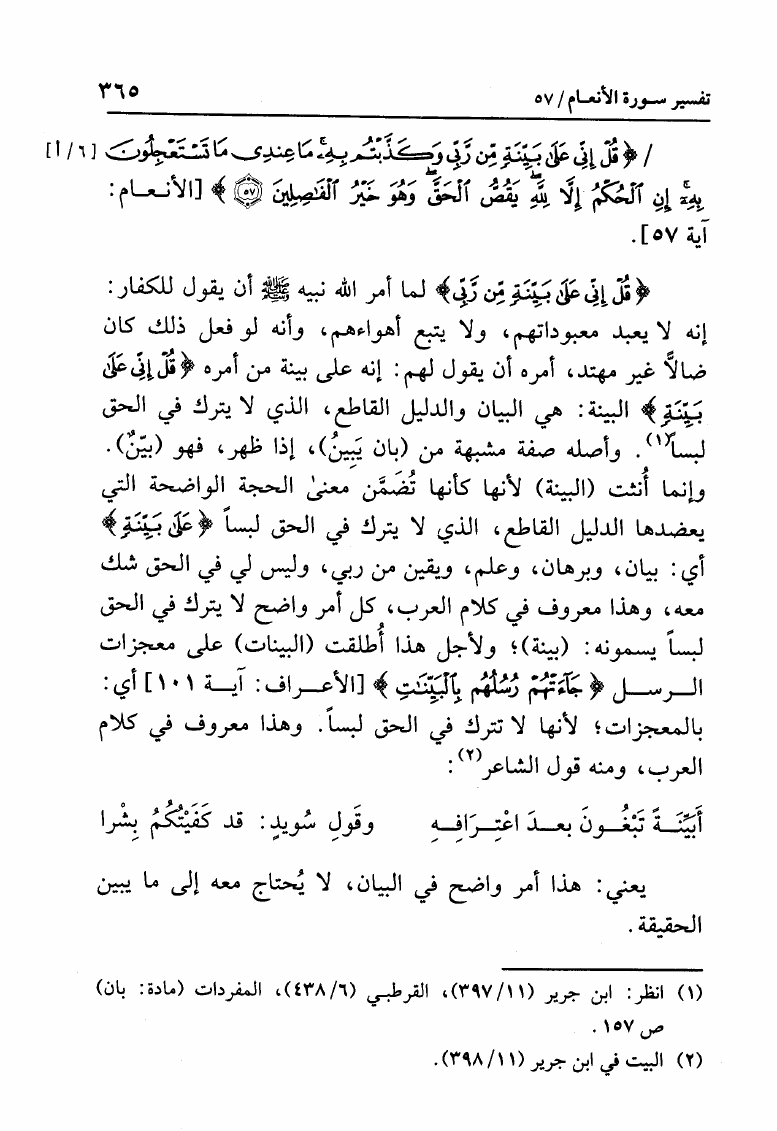 تفسير سورة الأنعام/ ٥٧ ٣٦٥
/ ﴿ قُلْ إِنِّي عَلَىٰ بَيِّنَةٍ مِّن رَّبِّي وَكَذَّبْتُم بِهِۦۚ مَا عِندِي مَا تَسْتَعْجِلُونَ [٦/أ]
بِهِۦٓۚ إِنِ ٱلْحُكْمُ إِلَّا لِلَّهِۖ يَقُصُّ ٱلْحَقَّۖ وَهُوَ خَيْرُ ٱلْفَٰصِلِينَ ۝٥٧ ﴾ [الأنعام:
آية ٥٧].
﴿قُلْ إِنِّي عَلَىٰ بَيِّنَةٍ مِّن رَّبِّي﴾ لما أمر الله نبيه ﷺ أن يقول للكفار:
إنه لا يعبد معبوداتهم، ولا يتبع أهواءهم، وأنه لو فعل ذلك كان
ضالًّا غير مهتد، أمره أن يقول لهم: إنه على بينة من أمره ﴿قُلْ إِنِّي عَلَىٰ
بَيِّنَةٍ﴾ البينة: هي البيان والدليل القاطع، الذي لا يترك في الحق
لبساً(١). وأصله صفة مشبهة من (بان يَبِينُ)، إذا ظهر، فهو (بيّنٌ).
وإنما أُنثت (البينة) لأنها كأنها تُضَمَّن معنىٰ الحجة الواضحة التي
يعضدها الدليل القاطع، الذي لا يترك في الحق لبساً ﴿عَلَىٰ بَيِّنَةٍ﴾
أي: بيان، وبرهان، وعلم، ويقين من ربي، وليس لي في الحق شك
معه، وهذا معروف في كلام العرب، كل أمر واضح لا يترك في الحق
لبساً يسمونه: (بينة)؛ ولأجل هذا أُطلقت (البينات) على معجزات
الرسل ﴿جَآءَتْهُمْ رُسُلُهُم بِٱلْبَيِّنَٰتِ﴾ [الأعراف: آية ١٠١] أي:
بالمعجزات؛ لأنها لا تترك في الحق لبساً. وهذا معروف في كلام
العرب، ومنه قول الشاعر(٢):
أَبَيِّنَةً تَبْغُونَ بعدَ اعْتِرَافِهِ وقَولِ سُويدٍ: قد كَفَيْتُكُمُ بِشْرا
يعني: هذا أمر واضح في البيان، لا يُحتاج معه إلى ما يبين
الحقيقة.
(١) انظر: ابن جرير (٣٩٧/١١)، القرطبي (٤٣٨/٦)، المفردات (مادة: بان)
ص ١٥٧.
(٢) البيت في ابن جرير (٣٩٨/١١).